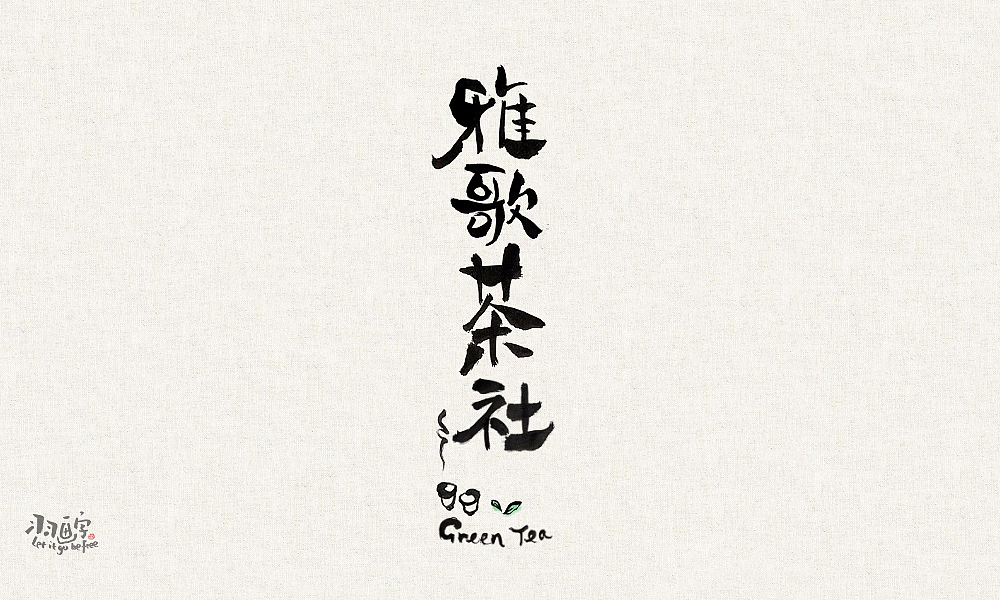 雅歌茶社
Green Tea
羽画字
Let it go be free